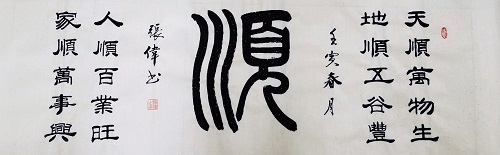 天順萬物生
地順五谷豐
壬寅春月
順
張偉书
人順百業旺
家順萬事興